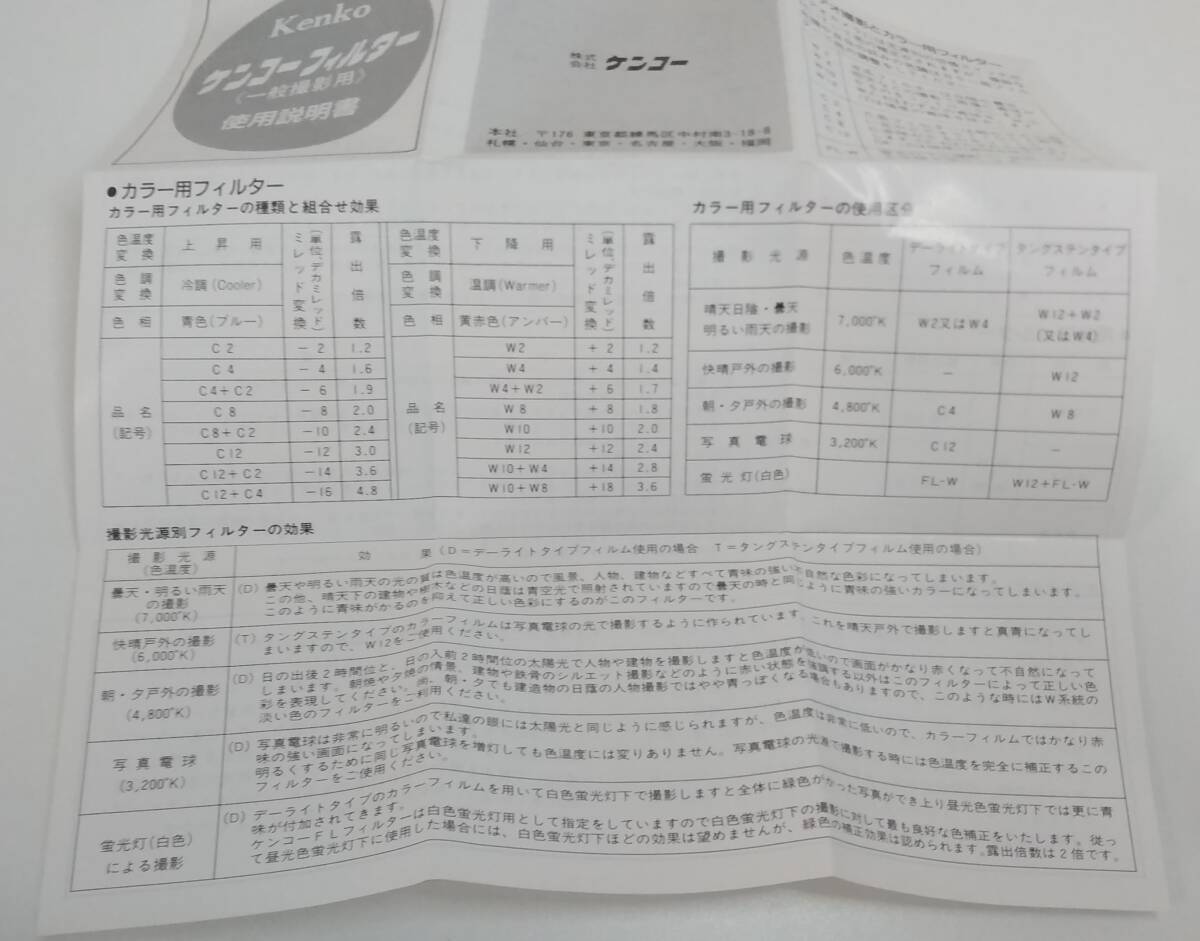 Kenko
ケンコーフィルター
〈一般撮影用〉
使用説明書
株式会社 ケンコー
本社 〒176 東京都練馬区中村南3-18-8
札幌・仙台・東京・名古屋・大阪・福岡
撮影とカラー用フィルター
●カラー用フィルター
カラー用フィルターの種類と組合せ効果
色温度変換 上昇用 ミレッド変換(単位、デカミレッド) 露出倍数 色温度変換 下降用 ミレッド変換(単位、デカミレッド) 露出倍数
色調変換 冷調(Cooler) 色調変換 温調(Warmer)
色相 青色(ブルー) 色相 黄赤色(アンバー)
品名(記号) 品名(記号)
C2 -2 1.2 W2 +2 1.2
C4 -4 1.6 W4 +4 1.4
C4+C2 -6 1.9 W4+W2 +6 1.7
C8 -8 2.0 W8 +8 1.8
C8+C2 -10 2.4 W10 +10 2.0
C12 -12 3.0 W12 +12 2.4
C12+C2 -14 3.6 W10+W4 +14 2.8
C12+C4 -16 4.8 W10+W8 +18 3.6
カラー用フィルターの使用区分
撮影光源 色温度 デーライトタイプフィルム タングステンタイプフィルム
晴天日陰・曇天 明るい雨天の撮影 7,000°K W2又はW4 W12+W2(又はW4)
快晴戸外の撮影 6,000°K — W12
朝・夕戸外の撮影 4,800°K C4 W8
写真電球 3,200°K C12 —
蛍光灯(白色) FL-W W12+FL-W
撮影光源別フィルターの効果
撮影光源(色温度) 効果(D=デーライトタイプフィルム使用の場合 T=タングステンタイプフィルム使用の場合)
曇天・明るい雨天の撮影(7,000°K)
(D) 曇天や明るい雨天の光の質は色温度が高いので風景、人物、建物などすべて青味の強い不自然な色彩になってしまいます。
この他、晴天下の建物や樹木などの日蔭は青空光で照射されていますので曇天の時と同じように青味の強いカラーになってしまいます。
このように青味がかるのを抑えて正しい色彩にするのがこのフィルターです。
快晴戸外の撮影(6,000°K)
(T) タングステンタイプのカラーフィルムは写真電球の光で撮影するように作られています。これを晴天戸外で撮影しますと真青になってし
まいますので、W12をご使用ください。
朝・夕戸外の撮影(4,800°K)
(D) 日の出後2時間位と、日の入前2時間位の太陽光で人物や建物を撮影しますと色温度が低いので画面がかなり赤くなって不自然になって
しまいます。朝焼や夕焼の情景、建物や鉄骨のシルエット撮影などのように赤い状態を強調する以外はこのフィルターによって正しい色
彩を表現してください。尚、朝・夕でも建造物の日蔭の人物撮影ではやや青っぽくなる場合もありますので、このような時にはW系統の
淡い色のフィルターをご利用ください。
写真電球(3,200°K)
(D) 写真電球は非常に明るいので私達の眼には太陽光と同じように感じられますが、色温度は非常に低いので、カラーフィルムではかなり赤
味の強い画面になってしまいます。
明るくするために同じ写真電球を増灯しても色温度には変りありません。写真電球の光源で撮影する時には色温度を完全に補正するこの
フィルターをご使用ください。
蛍光灯(白色)による撮影
(D) デーライトタイプのカラーフィルムを用いて白色蛍光灯下で撮影しますと全体に緑色がかった写真ができ上り昼光色蛍光灯下では更に青
味が付加されてきます。
ケンコーFLフィルターは白色蛍光灯用として指定をしていますので白色蛍光灯下の撮影に対して最も良好な色補正をいたします。従っ
て昼光色蛍光灯下に使用した場合には、白色蛍光灯下ほどの効果は望めませんが、緑色の補正効果は認められます。露出倍数は2倍です。